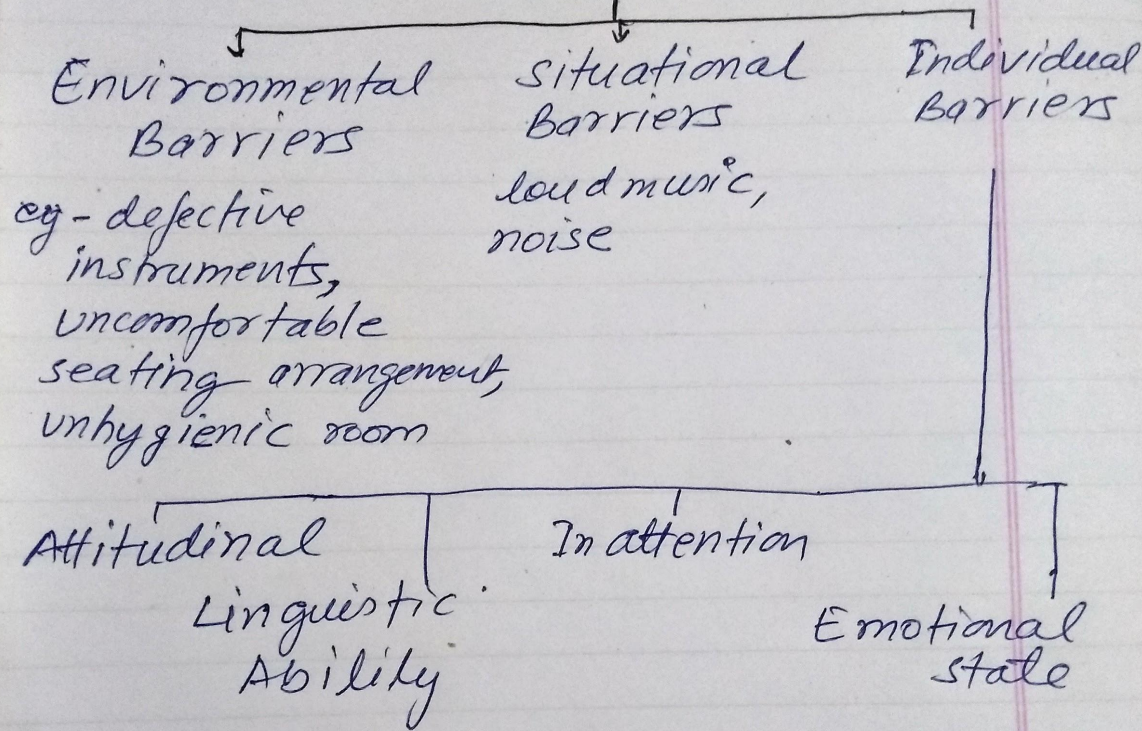 Environmental
Barriers
eg - defective
instruments,
uncomfortable
seating arrangement,
unhygienic room
Situational
Barriers
loud music,
noise
Individual
Barriers
Attitudinal
Linguistic
Ability
In attention
Emotional
state